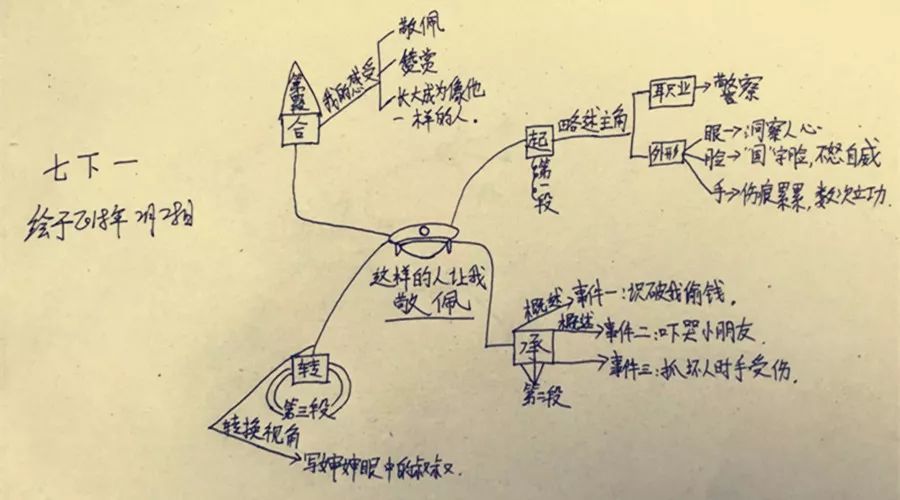 七下一
绘于2018年2月28日
这样的人让我
敬佩
起
第一段
略述主角
职业
警察
外形
眼→洞察人心
脸→"国"字脸,不怒自威
手→伤痕累累,数次立功.
承
第二段
概述
事件一:识破我偷钱.
概述
事件二:吓哭小朋友.
事件三:抓坏人时手受伤.
转
第三段
转换视角
写婶婶眼中的叔叔.
合
我的感受
敬佩
赞赏
长大成为像他
一样的人.